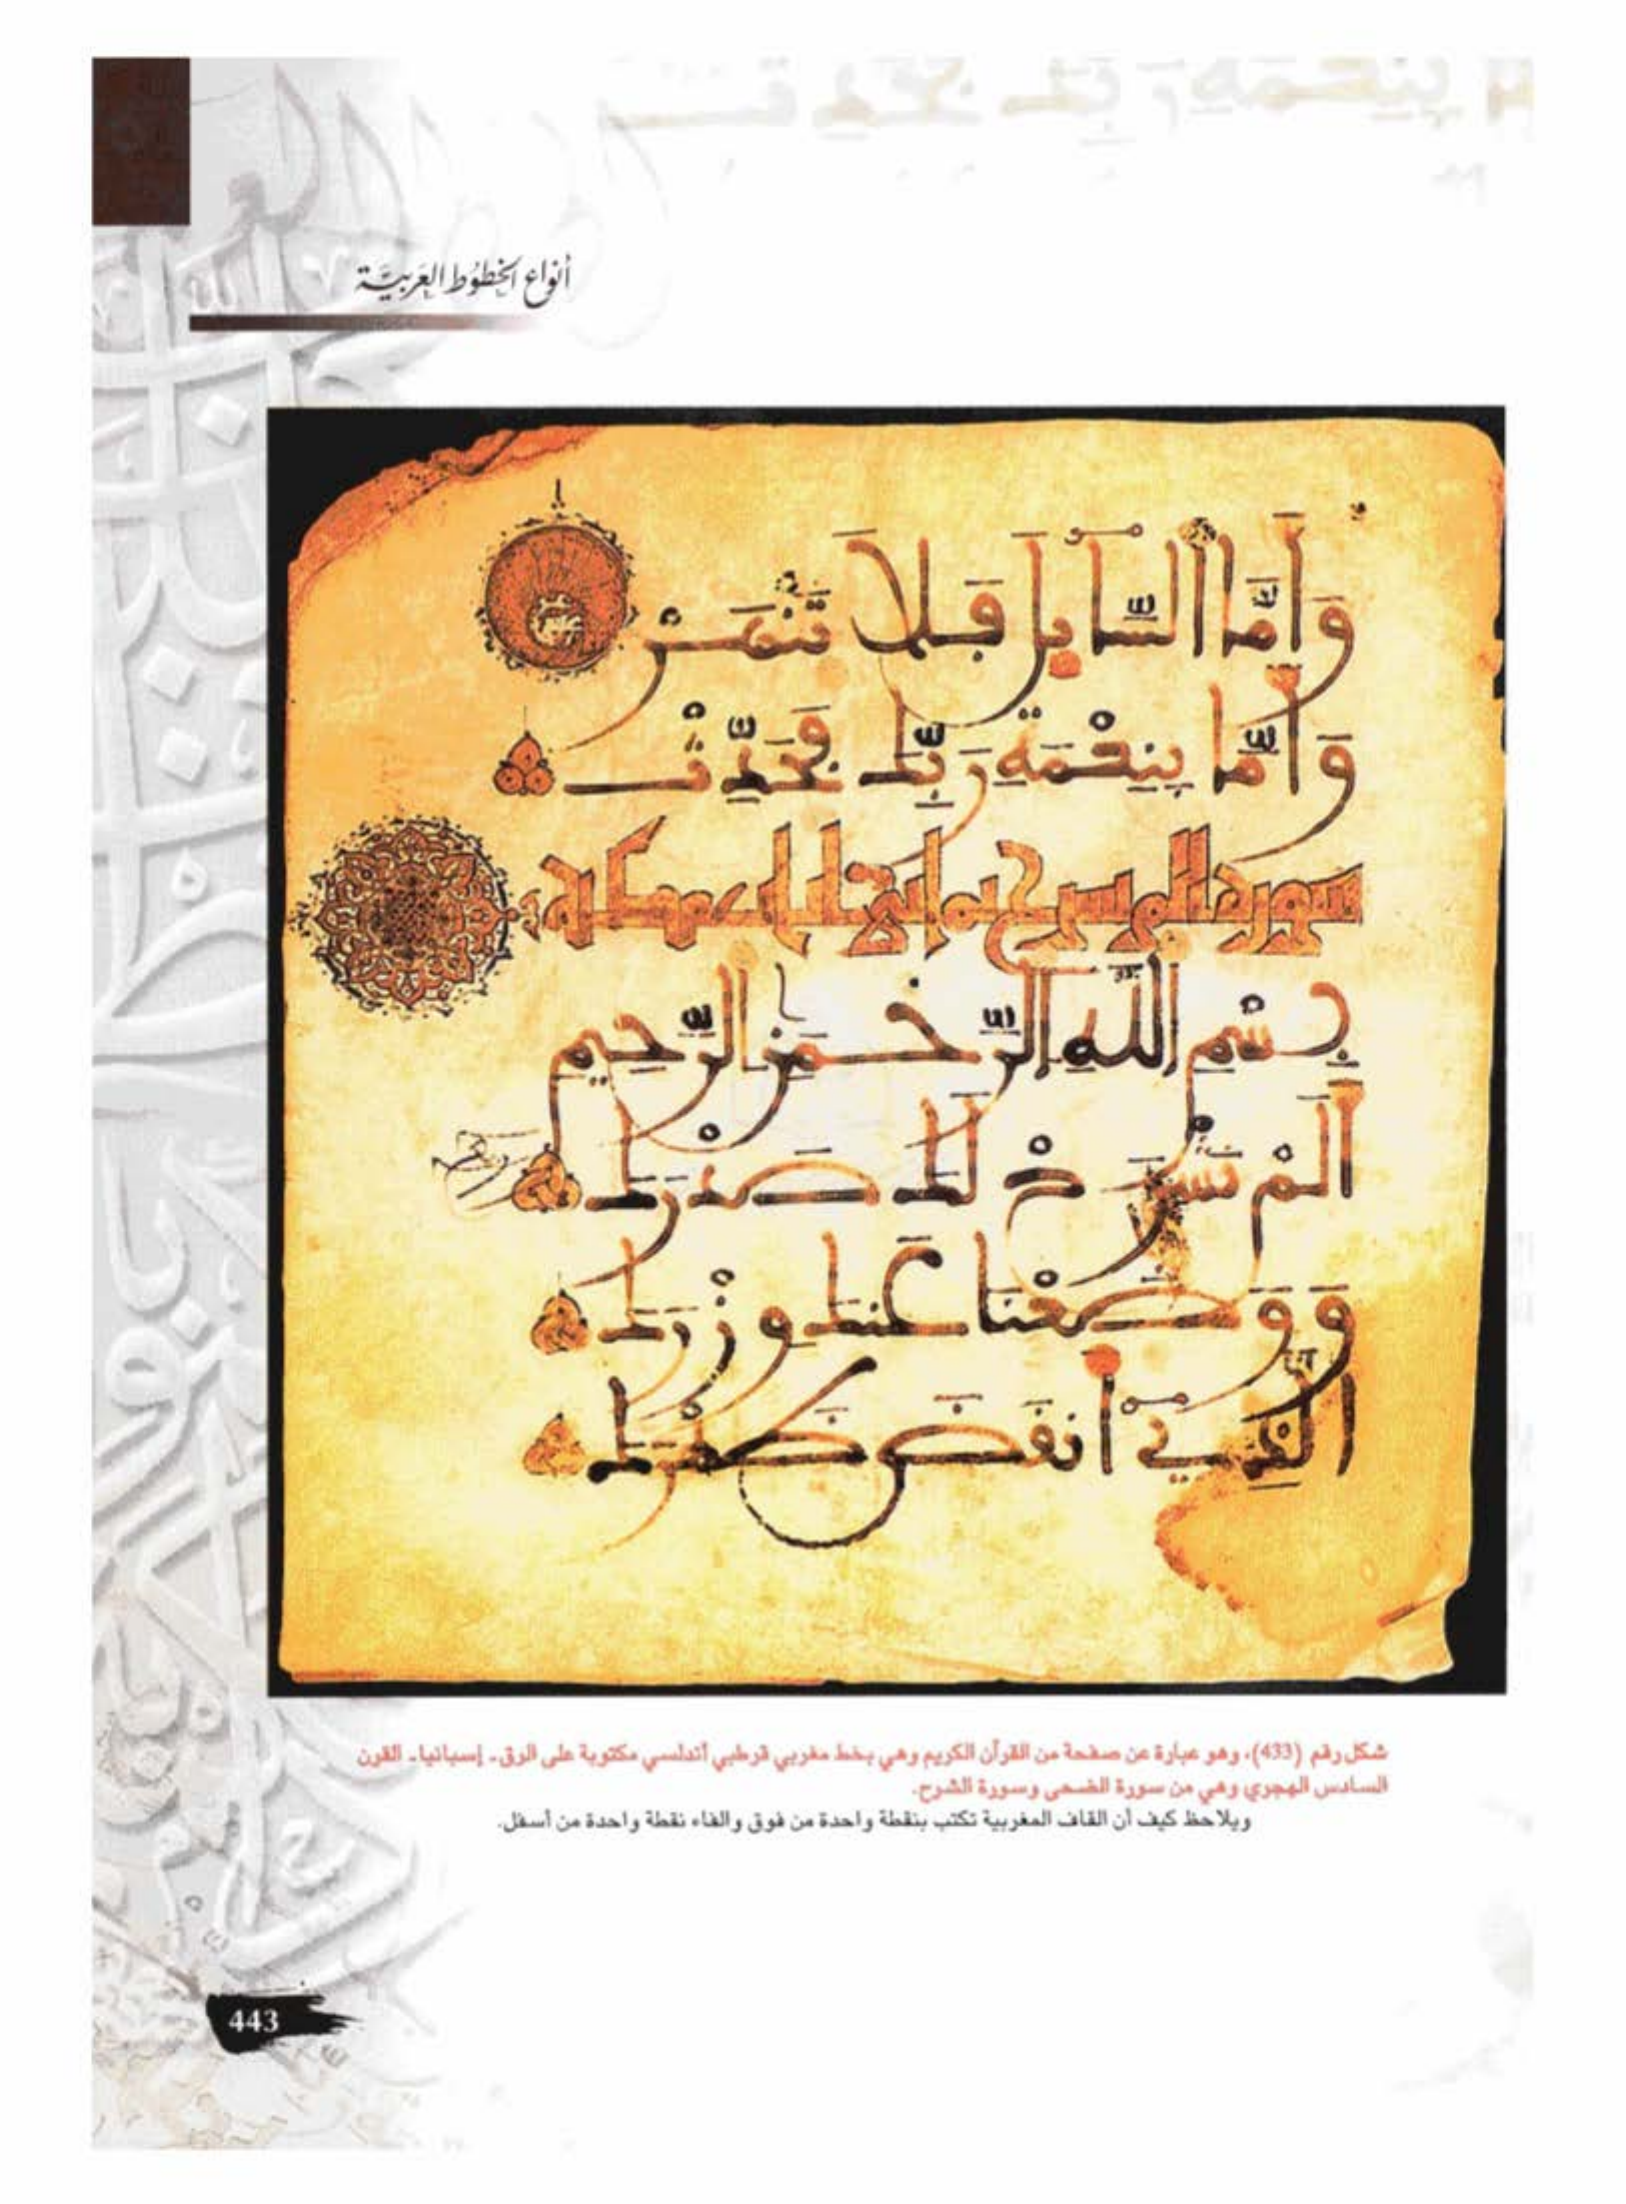 أنواع الخطوط العربية
وَأَمَّا السَّايِلَ فَلَا تَنْهَرْ
وَأَمَّا بِنِعْمَةِ رَبِّكَ فَحَدِّثْ
بِسْمِ اللَّهِ الرَّحْمَنِ الرَّحِيمِ
أَلَمْ نَشْرَحْ لَكَ صَدْرَكَ
وَوَضَعْنَا عَنكَ وِزْرَكَ
الَّذِي أَنقَضَ ظَهْرَكَ
شكل رقم (433)، وهو عبارة عن صفحة من القرآن الكريم وهي بخط مغربي قرطبي أندلسي مكتوبة على الرق - إسبانيا - القرن
السادس الهجري وهي من سورة الضحى وسورة الشرح.
ويلاحظ كيف أن القاف المغربية تكتب بنقطة واحدة من فوق والفاء نقطة واحدة من أسفل.
443